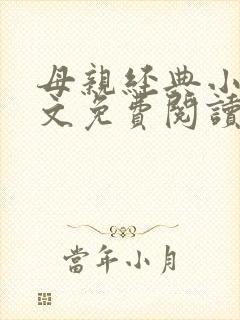 母親經典小
文免費閱讀
當年小月